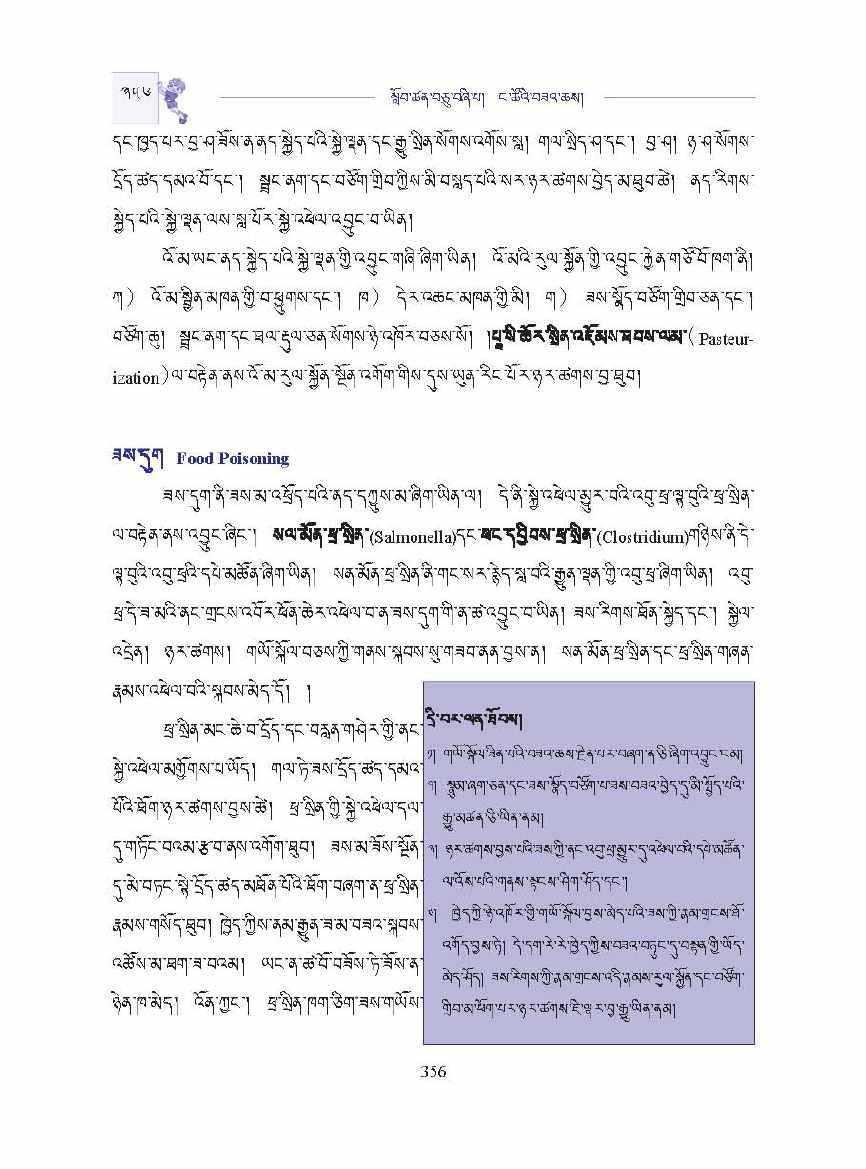 ༣༥༦
སློབ་ཚན་བཅུ་བཞི་པ། ང་ཚོའི་བཟའ་ཆས།
དང་ཁྱད་པར་བྱ་ཤ་ཟོས་ན་ནད་སྐྱེད་པའི་སྐྱེ་ལྡན་དང་རྒྱུ་སྲིན་སོགས་འགོས་སླ། གལ་སྲིད་ཤ་དང་། བྱ་ཤ། ཉ་ཤ་སོགས་
དྲོད་ཚད་དམའ་བོ་དང་། སྦྲང་ནག་དང་བཙོག་གྲིབ་ཀྱིས་མི་བསླད་པའི་སར་ཉར་ཚགས་བྱེད་མ་ཐུབ་ཚེ། ནད་རིགས་
སྐྱེད་པའི་སྐྱེ་ལྡན་ལས་སླ་པོར་སྐྱེ་འཕེལ་འབྱུང་བ་ཡིན།
འོ་མ་ཡང་ནད་སྐྱེད་པའི་སྐྱེ་ལྡན་གྱི་འབྱུང་གཞི་ཞིག་ཡིན། འོ་མའི་རུལ་སྐྱོན་གྱི་འབྱུང་རྐྱེན་གཙོ་བོ་ཁག་ནི།
ཀ) འོ་མ་སྦྱིན་མཁན་གྱི་བ་ཕྱུགས་དང་། ཁ) དེར་འཆང་མཁན་གྱི་མི། ག) ཟས་སྣོད་བཙོག་གྲིབ་ཅན་དང་།
བཙོག་ཆུ། སྦྲང་ནག་དང་ཐལ་རྡུལ་ཅན་སོགས་ཉེ་འཁོར་བཅས་སོ། །པཱ་སི་ཚོར་སྲིན་འཇོམས་ཐབས་ལམ་( Pasteur-
ization)ལ་བརྟེན་ནས་འོ་མ་རུལ་སྐྱོན་སྔོན་འགོག་གིས་དུས་ཡུན་རིང་པོར་ཉར་ཚགས་བྱ་ཐུབ།
ཟས་དུག Food Poisoning
ཟས་དུག་ནི་ཟས་མ་འཕྲོད་པའི་ནད་དཀྱུས་མ་ཞིག་ཡིན་ལ། དེ་ནི་སྐྱེ་འཕེལ་མྱུར་བའི་འབུ་ཕྲ་ལྟ་བུའི་ཕྲ་སྲིན་
ལ་བརྟེན་ནས་འབྱུང་ཞིང་། སལ་མོན་ཕྲ་སྲིན་(Salmonella)དང་ཕང་དབྱིབས་ཕྲ་སྲིན་(Clostridium)གཉིས་ནི་དེ་
ལྟ་བུའི་འབུ་ཕྲའི་དཔེ་མཚོན་ཞིག་ཡིན། སན་མོན་ཕྲ་སྲིན་ནི་གང་སར་རྙེད་སླ་བའི་རྒྱུན་ལྡན་གྱི་འབུ་ཕྲ་ཞིག་ཡིན། འབུ་
ཕྲ་དེ་ཟ་མའི་ནང་གྲངས་འབོར་ཕོན་ཆེར་འཕེལ་བ་ན་ཟས་དུག་གི་ན་ཚ་འབྱུང་བ་ཡིན། ཟས་རིགས་ཐོན་སྐྱེད་དང་། སྐྱེལ་
འདྲེན། ཉར་ཚགས། གཡོ་སྐོལ་བཅས་ཀྱི་གནས་སྐབས་སུ་གཟབ་ནན་བྱས་ན། སན་མོན་ཕྲ་སྲིན་དང་ཕྲ་སྲིན་གཞན་
རྣམས་འཕེལ་བའི་སྐབས་མེད་དོ། །
ཕྲ་སྲིན་མང་ཆེ་བ་དྲོད་དང་བརླན་གཤེར་གྱི་ནང་
སྐྱེ་འཕེལ་མགྱོགས་པ་ཡོད། གལ་ཏེ་ཟས་དྲོད་ཚད་དམའ་
པོའི་ཐོག་ཉར་ཚགས་བྱས་ཚེ། ཕྲ་སྲིན་གྱི་སྐྱེ་འཕེལ་དལ་
དུ་གཏོང་བའམ་རྩ་བ་ནས་འགོག་ཐུབ། ཟས་མ་ཟོས་སྔོན་
དུ་མེ་བཏང་སྟེ་དྲོད་ཚད་མཐོན་པོའི་ཐོག་བཞག་ན་ཕྲ་སྲིན་
རྣམས་གསོད་ཐུབ། ཁྱེད་ཀྱིས་ནམ་རྒྱུན་ཟ་མ་བཟའ་སྐབས་
འཚོས་མ་ཐག་ཟ་བའམ། ཡང་ན་ཚ་པོ་བཟོས་ཏེ་ཟོས་ན་
ཉེན་ཁ་མེད། འོན་ཀྱང་། ཕྲ་སྲིན་ཁག་ཅིག་ཟས་གཡོས་
དྲི་བར་ལན་ཐོབས།
༡། གཡོ་སྐོལ་ཟིན་པའི་བཟའ་ཆས་རྗེན་པར་བཞག་ན་ཅི་ཞིག་འབྱུང་ངམ།
༢། སྣུམ་ཞག་ཅན་དང་ཟས་སྣོད་བཙོག་པ་ཟས་བཟའ་བྱེད་དུ་མི་སྤྱོད་པའི་
རྒྱུ་མཚན་ཅི་ཡིན་ནམ།
༣། ཉར་ཚགས་བྱས་པའི་ཟས་ཀྱི་ནང་འབུ་ཕྲ་མྱུར་དུ་འཕེལ་བའི་དཔེ་མཚོན་
ལ་འོས་པའི་གནས་སྟངས་ཤིག་ཤོད་དང་།
༤། ཁྱེད་ཀྱི་ཉེ་འཁོར་གྱི་གཡོ་སྐོལ་བྱས་མེད་པའི་ཟས་ཀྱི་རྣམ་གྲངས་ཐོ་
འགོད་བྱས་ཏེ། དེ་དག་རེ་རེ་ཁྱེད་ཀྱིས་བཟའ་བཏུང་དུ་བསྟན་གྱི་ཡོད་
མེད་ཤོད། ཟས་རིགས་ཀྱི་རྣམ་གྲངས་འདི་རྣམས་རུལ་སྐྱོན་དང་བཙོག་
གྲིབ་མ་ཕོག་པར་ཉར་ཚགས་ཇི་ལྟར་བྱ་རྒྱུ་ཡིན་ནམ།
356